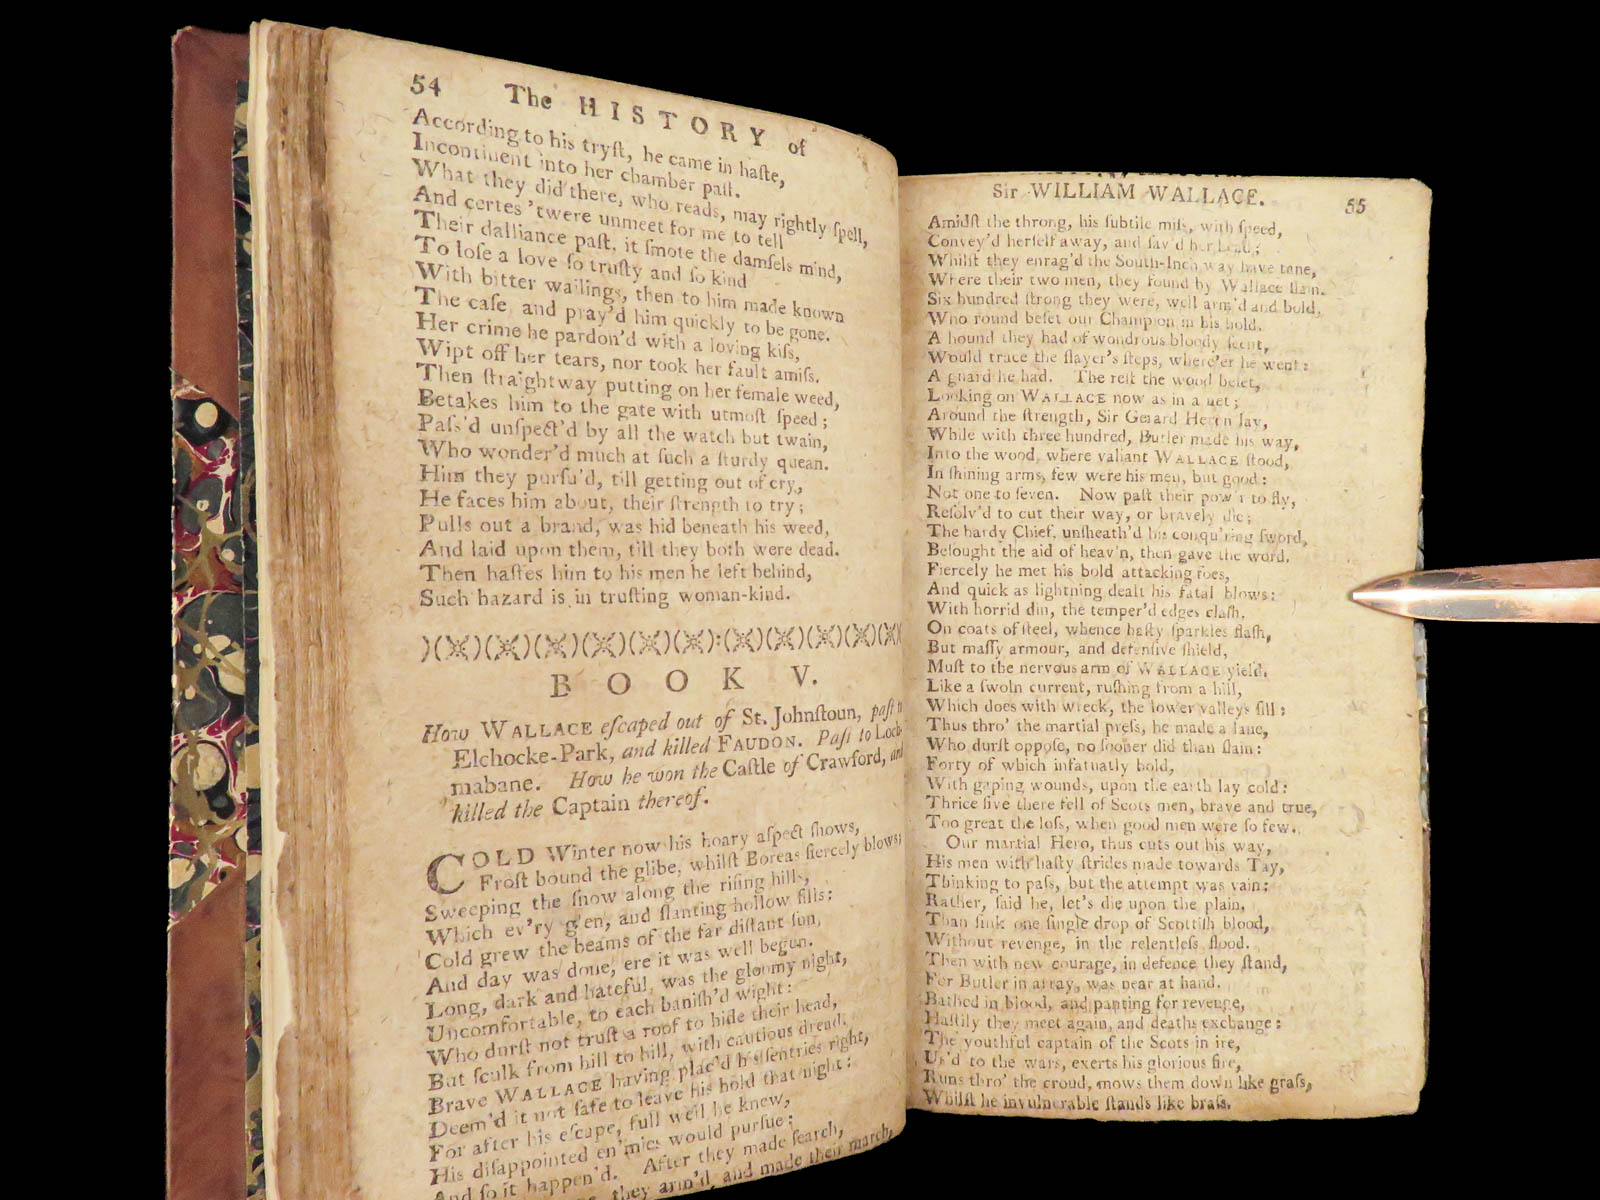 54 The HISTORY of
According to his tryſt, he came in haſte,
Incontinent into her chamber paſt.
What they did there, who reads, may rightly ſpell,
And certes 'twere unmeet for me to tell
Their dalliance paſt, it ſmote the damſels mind,
To loſe a love ſo truſty and ſo kind
With bitter wailings, then to him made known
The caſe, and pray'd him quickly to be gone.
Her crime he pardon'd with a loving kiſs,
Wipt off her tears, nor took her fault amiſs.
Then ſtraightway putting on her female weed,
Betakes him to the gate with utmoſt ſpeed;
Paſs'd unſpect'd by all the watch but twain,
Who wonder'd much at ſuch a ſturdy quean.
Him they purſu'd, till getting out of cry,
He faces him about, their ſtrength to try;
Pulls out a brand, was hid beneath his weed,
And laid upon them, till they both were dead.
Then haſtes him to his men he left behind,
Such hazard is in truſting woman-kind.
BOOK V.
How WALLACE eſcaped out of St. Johnſtoun, paſt
Elchocke-Park, and killed FAUDON. Paſt to Loch-
mabane. How he won the Caſtle of Crawford, and
killed the Captain thereof.
COLD Winter now his hoary aſpect ſhows,
Froſt bound the glibe, whilſt Boreas fiercely blows;
Sweeping the ſnow along the riſing hills,
Which ev'ry glen, and ſlanting hollow fills:
Cold grew the beams of the far diſtant ſun,
And day was done, ere it was well begun.
Long, dark and hateful, was the gloomy night,
Uncomfortable, to each baniſh'd wight:
Who durſt not truſt a roof to hide their head,
But ſculk from hill to hill, with cautious dread.
Brave WALLACE having plac'd his ſentries right,
Deem'd it not ſafe to leave his hold that night:
For after his eſcape, full well he knew,
His diſappointed en'mies would purſue:
And ſo it happen'd. After they made ſearch,
they arm'd, and made their march,
Sir WILLIAM WALLACE. 55
Amidſt the throng, his ſubtile miſs, with ſpeed,
Convey'd herſelf away, and ſav'd her head;
Whilſt they enrag'd the South-Inch way have tane,
Where their two men, they found by Wallace ſlain.
Six hundred ſtrong they were, well arm'd and bold,
Who round beſet our Champion in his hold.
A hound they had of wondrous bloody ſcent,
Would trace the ſlayer's ſteps, where'er he went:
A guard he had. The reſt the wood beſet,
Looking on WALLACE now as in a net;
Around the ſtrength, Sir Gerard Heron lay,
While with three hundred, Butler made his way,
Into the wood, where valiant WALLACE ſtood,
In ſhining arms, few were his men, but good:
Not one to ſeven. Now paſt their pow'r to fly,
Reſolv'd to cut their way, or bravely die;
The hardy Chief, unſheath'd his conqu'ring ſword,
Beſought the aid of heav'n, then gave the word.
Fiercely he met his bold attacking foes,
And quick as lightning dealt his fatal blows:
With horrid din, the temper'd edges claſh,
On coats of ſteel, whence haſty ſparkles flaſh,
But maſſy armour, and defenſive ſhield,
Muſt to the nervous arm of WALLACE yield.
Like a ſwoln current, ruſhing from a hill,
Which does with wreck, the lower valleys fill:
Thus thro' the martial preſs, he made a lane,
Who durſt oppoſe, no ſooner did than ſlain:
Forty of which infatuatly bold,
With gaping wounds, upon the earth lay cold:
Thrice five there fell of Scots men, brave and true,
Too great the loſs, when good men were ſo few.
Our martial Hero, thus cuts out his way,
His men with haſty ſtrides made towards Tay,
Thinking to paſs, but the attempt was vain:
Rather, ſaid he, let's die upon the plain,
Than ſink one ſingle drop of Scottiſh blood,
Without revenge, in the relentleſs flood.
Then with new courage, in defence they ſtand,
For Butler in array, was near at hand.
Bathed in blood, and panting for revenge,
Haſtily they meet again, and deaths exchange:
The youthful captain of the Scots in ire,
Us'd to the wars, exerts his glorious fire,
Runs thro' the croud, mows them down like graſs,
Whilſt he invulnerable ſtands like braſs.